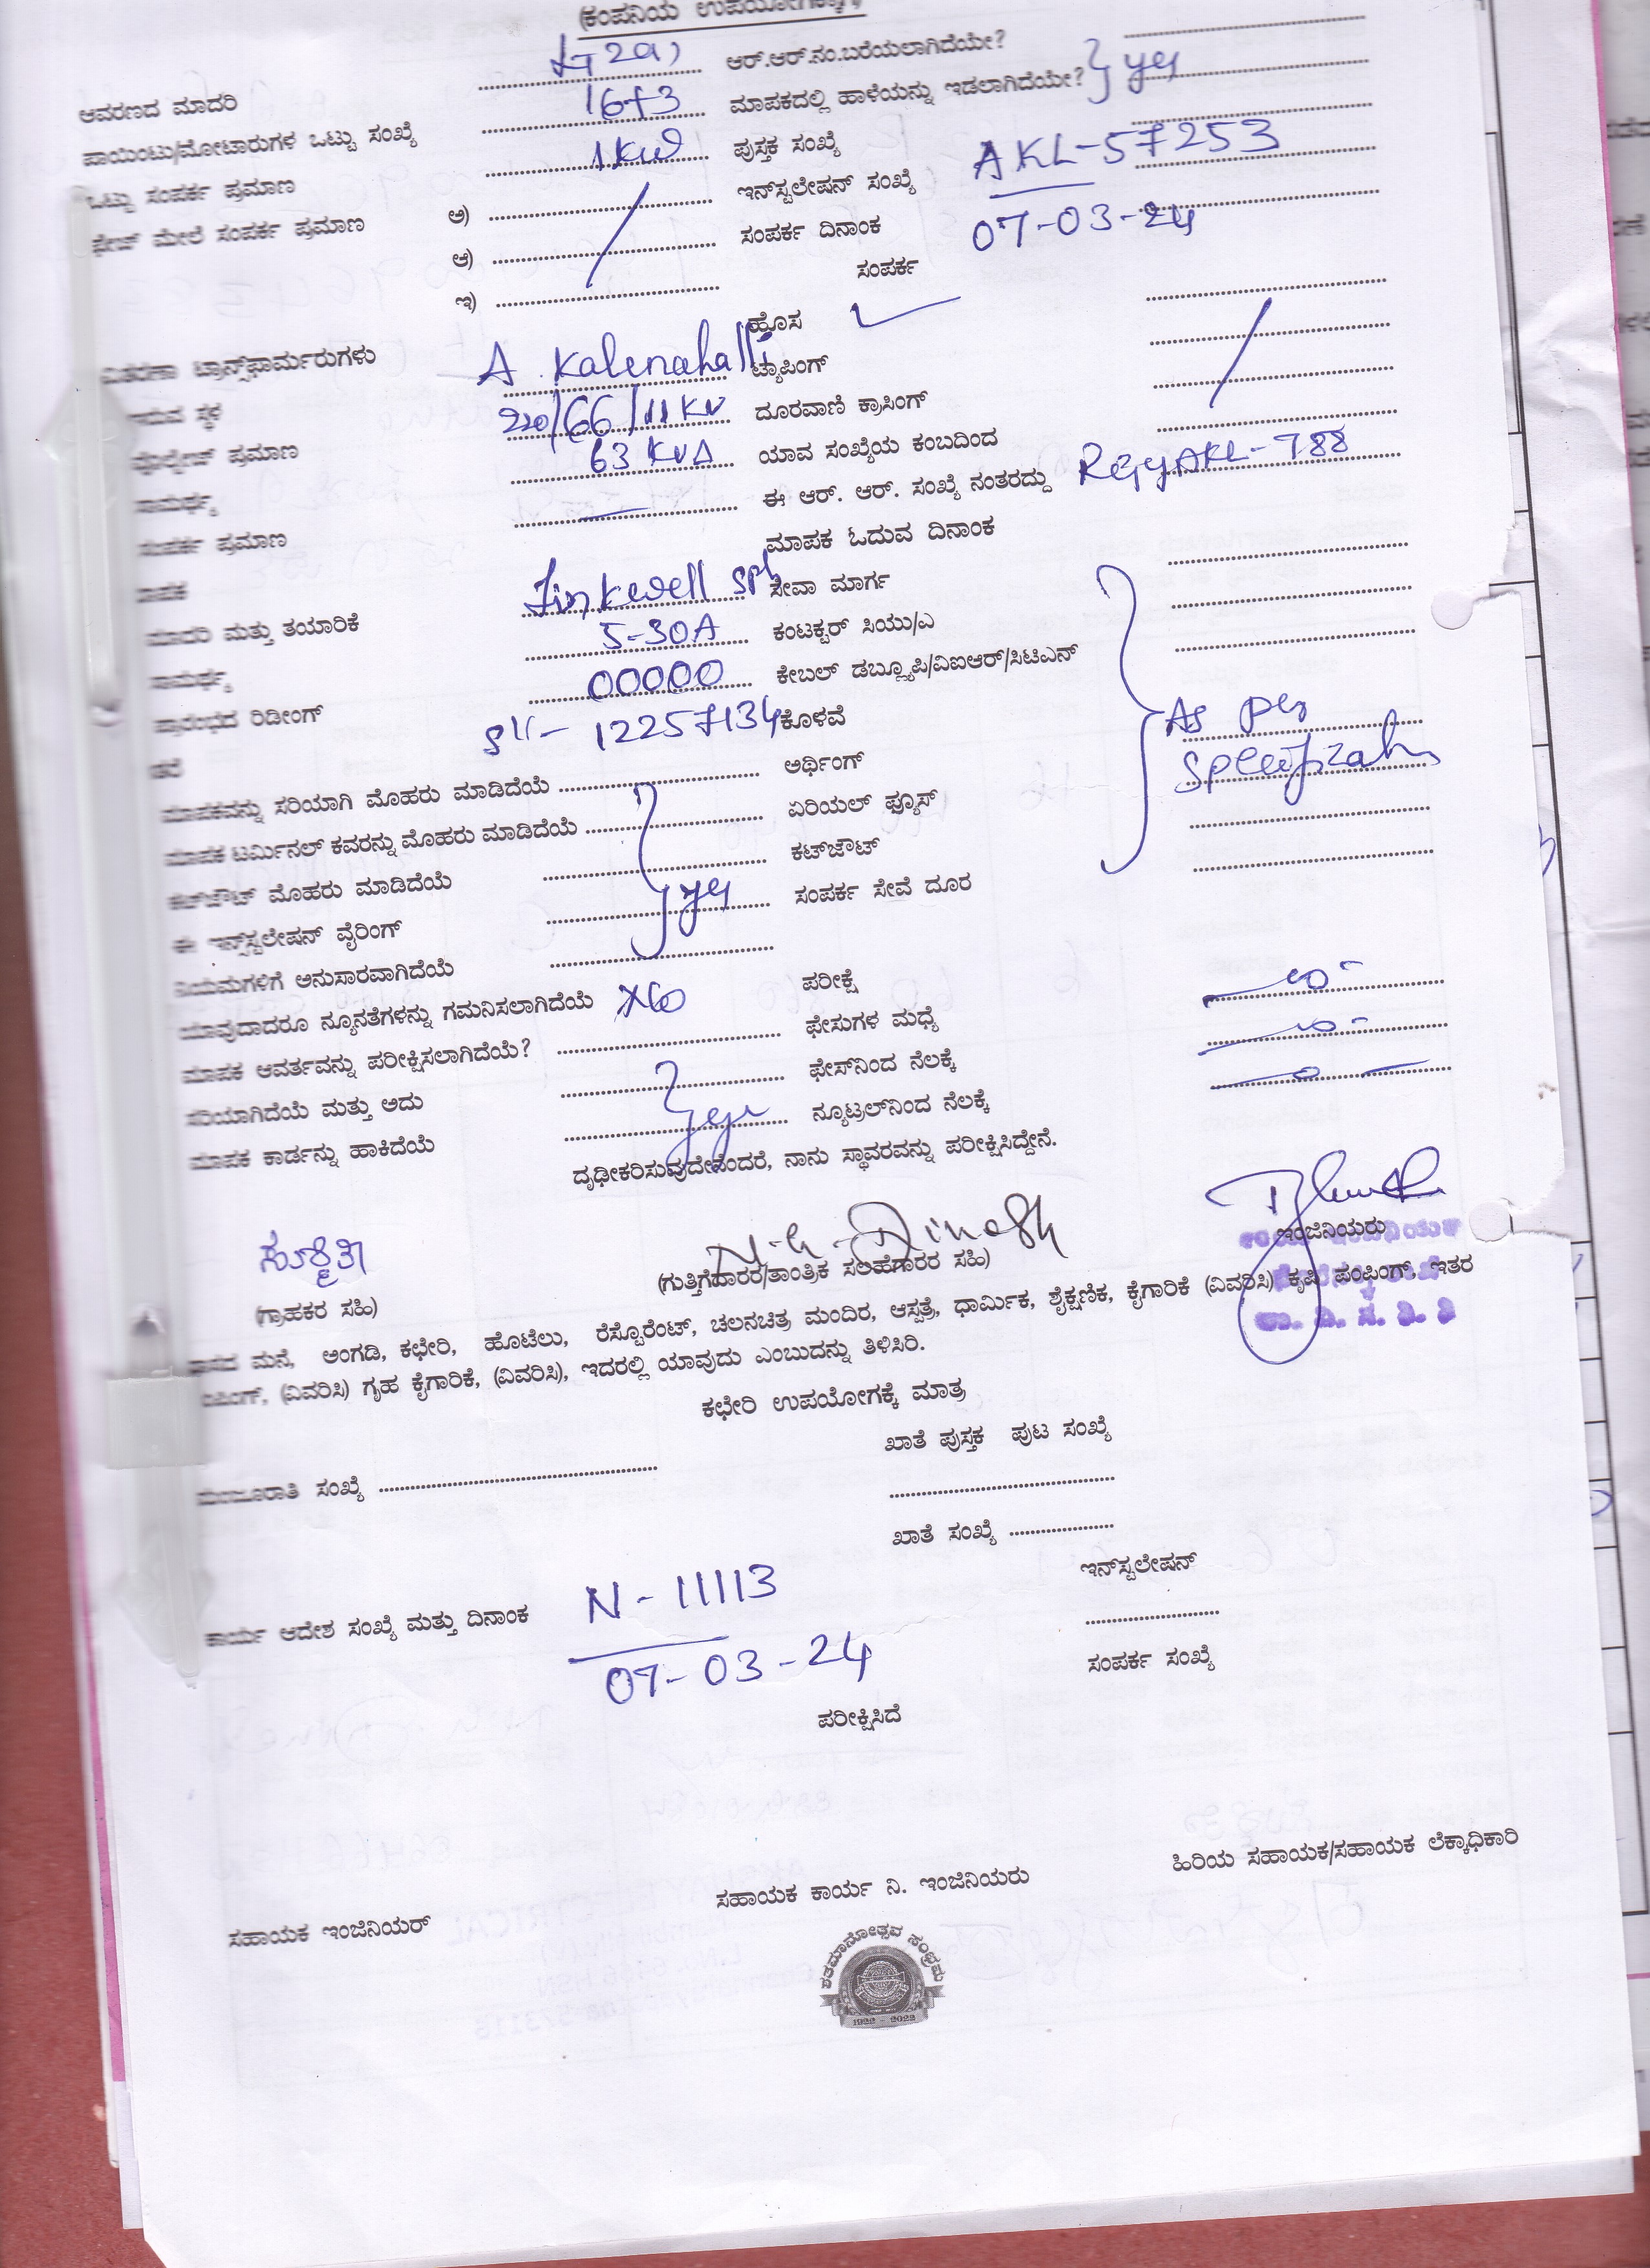 (ಕಂಪನಿಯ ಉಪಯೋಗಕ್ಕಾಗಿ)
ಆವರಣದ ಮಾದರಿ LT 2a) ಆರ್.ಆರ್.ನಂ.ಬರೆಯಲಾಗಿದೆಯೇ?
ಪಾಯಿಂಟು/ಮೋಟಾರುಗಳ ಒಟ್ಟು ಸಂಖ್ಯೆ 16+3 ಮಾಪಕದಲ್ಲಿ ಹಾಳೆಯನ್ನು ಇಡಲಾಗಿದೆಯೇ? yes
ಒಟ್ಟು ಸಂಪರ್ಕ ಪ್ರಮಾಣ 1KW ಪುಸ್ತಕ ಸಂಖ್ಯೆ
ಫೇಜ್ ಮೇಲೆ ಸಂಪರ್ಕ ಪ್ರಮಾಣ ಅ) ಇನ್‌ಸ್ಟಲೇಷನ್ ಸಂಖ್ಯೆ AKL-57253
ಆ) ಸಂಪರ್ಕ ದಿನಾಂಕ 07-03-24
ಇ) ಸಂಪರ್ಕ
ಹೊಸ
ವಿತರಣಾ ಟ್ರಾನ್ಸ್‌ಫಾರ್ಮರುಗಳು A. Kalenahalli ಟ್ಯಾಪಿಂಗ್
ಇರುವ ಸ್ಥಳ 220/66/11KV ದೂರವಾಣಿ ಕ್ರಾಸಿಂಗ್
ವೋಲ್ಟೇಜ್ ಪ್ರಮಾಣ 63 KVA ಯಾವ ಸಂಖ್ಯೆಯ ಕಂಬದಿಂದ
ಸಾಮರ್ಥ್ಯ ಈ ಆರ್. ಆರ್. ಸಂಖ್ಯೆ ನಂತರದ್ದು
ಸಂಪರ್ಕ ಪ್ರಮಾಣ ಮಾಪಕ ಓದುವ ದಿನಾಂಕ
ಮಾಪಕ ಸೇವಾ ಮಾರ್ಗ
ಮಾದರಿ ಮತ್ತು ತಯಾರಿಕೆ ಕಂಟಕ್ಟರ್ ಸಿಯು/ಎ
ಸಾಮರ್ಥ್ಯ 5-30A ಕೇಬಲ್ ಡಬ್ಲ್ಯೂಪಿ/ವಿಐಆರ್/ಸಿಟಿಎನ್
ಪ್ರಾರಂಭದ ರಿಡೀಂಗ್ 00000 ಕೊಳವೆ As per
12257134 ಅರ್ಥಿಂಗ್
ಮಾಪಕವನ್ನು ಸರಿಯಾಗಿ ಮೊಹರು ಮಾಡಿದೆಯೆ ಏರಿಯಲ್ ಫ್ಯೂಸ್
ಮಾಪಕ ಟರ್ಮಿನಲ್ ಕವರನ್ನು ಮೊಹರು ಮಾಡಿದೆಯೆ ಕಟ್‌ಜೌಟ್
ಕಟ್‌ಜೌಟ್ ಮೊಹರು ಮಾಡಿದೆಯೆ yes ಸಂಪರ್ಕ ಸೇವೆ ದೂರ
ಈ ಇನ್ಸ್‌ಸ್ಟಲೇಷನ್ ವೈರಿಂಗ್
ನಿಯಮಗಳಿಗೆ ಅನುಸಾರವಾಗಿದೆಯೆ ಪರೀಕ್ಷೆ
ಯಾವುದಾದರೂ ನ್ಯೂನತೆಗಳನ್ನು ಗಮನಿಸಲಾಗಿದೆಯೆ No ಫೇಸುಗಳ ಮಧ್ಯೆ
ಮಾಪಕ ಆವರ್ತವನ್ನು ಪರೀಕ್ಷಿಸಲಾಗಿದೆಯೆ? ಫೇಸ್‌ನಿಂದ ನೆಲಕ್ಕೆ
ಸರಿಯಾಗಿದೆಯೆ ಮತ್ತು ಅದು yes ನ್ಯೂಟ್ರಲ್‌ನಿಂದ ನೆಲಕ್ಕೆ
ಮಾಪಕ ಕಾರ್ಡನ್ನು ಹಾಕಿದೆಯೆ
ದೃಢೀಕರಿಸುವುದೇನೆಂದರೆ, ನಾನು ಸ್ಥಾವರವನ್ನು ಪರೀಕ್ಷಿಸಿದ್ದೇನೆ.
N.G. Dinesh
(ಗ್ರಾಹಕರ ಸಹಿ) (ಗುತ್ತಿಗೆದಾರರ/ತಾಂತ್ರಿಕ ಸಲಹೆಗಾರರ ಸಹಿ) ಇಂಜಿನಿಯರು
ವಾಸದ ಮನೆ, ಅಂಗಡಿ, ಕಛೇರಿ, ಹೊಟೆಲು, ರೆಸ್ಟೊರೆಂಟ್, ಚಲನಚಿತ್ರ ಮಂದಿರ, ಆಸ್ಪತ್ರೆ, ಧಾರ್ಮಿಕ, ಶೈಕ್ಷಣಿಕ, ಕೈಗಾರಿಕೆ (ವಿವರಿಸಿ) ಕೃಷಿ ಪಂಪಿಂಗ್, ಇತರ
ಪಂಪಿಂಗ್, (ವಿವರಿಸಿ) ಗೃಹ ಕೈಗಾರಿಕೆ, (ವಿವರಿಸಿ), ಇದರಲ್ಲಿ ಯಾವುದು ಎಂಬುದನ್ನು ತಿಳಿಸಿರಿ.
ಕಛೇರಿ ಉಪಯೋಗಕ್ಕೆ ಮಾತ್ರ
ಖಾತೆ ಪುಸ್ತಕ ಪುಟ ಸಂಖ್ಯೆ
ಮಂಜೂರಾತಿ ಸಂಖ್ಯೆ
ಖಾತೆ ಸಂಖ್ಯೆ
ಇನ್‌ಸ್ಟಲೇಷನ್
ಕಾರ್ಯ ಆದೇಶ ಸಂಖ್ಯೆ ಮತ್ತು ದಿನಾಂಕ N-11113
07-03-24
ಸಂಪರ್ಕ ಸಂಖ್ಯೆ
ಪರೀಕ್ಷಿಸಿದೆ
ಸಹಾಯಕ ಇಂಜಿನಿಯರ್ ಸಹಾಯಕ ಕಾರ್ಯ ನಿ. ಇಂಜಿನಿಯರು ಹಿರಿಯ ಸಹಾಯಕ/ಸಹಾಯಕ ಲೆಕ್ಕಾಧಿಕಾರಿ
ಶತಮಾನೋತ್ಸವ ಸಂಭ್ರಮ
1922 - 2022